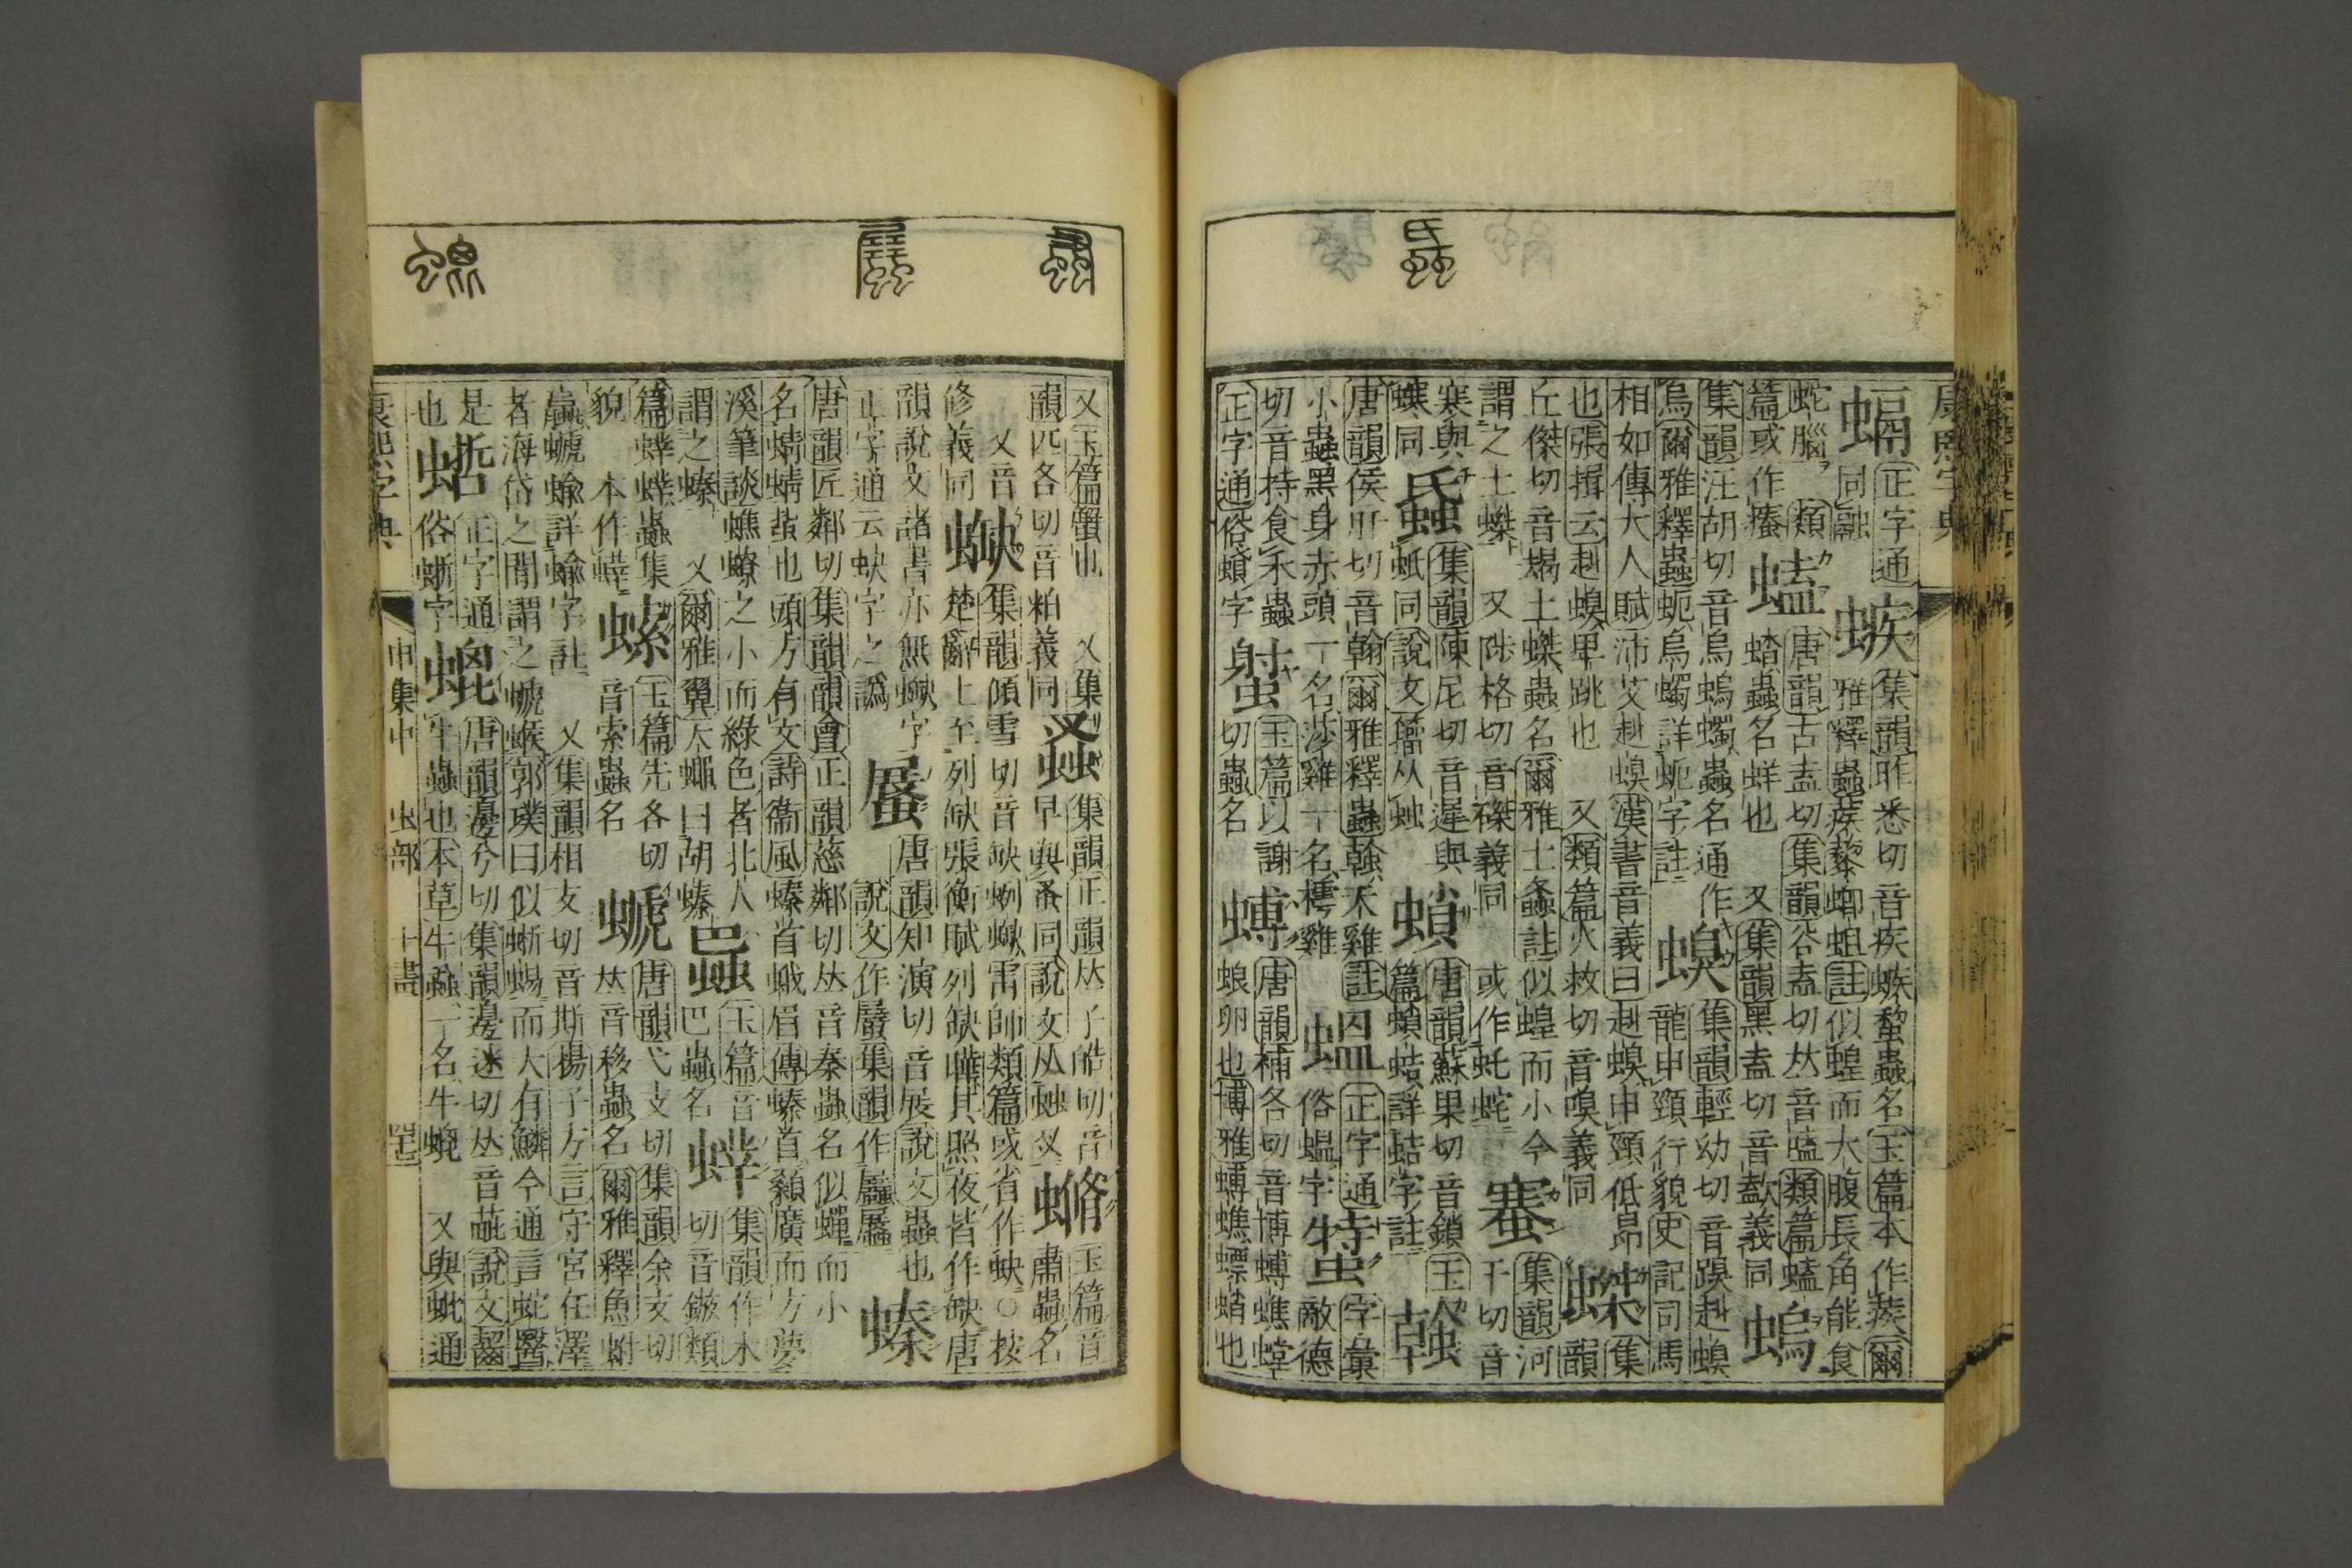 康熙字典
螎 正字通同融 螏 集韻昨悉切音疾螏蟍蟲名玉篇本作蒺爾雅釋蟲蒺蔾蝍蛆註似蝗而大腹長角能食
蛇腦 類篇或作 螛 唐韻古盍切集韻谷盍切𠀤音嗑類篇螛蟲名蛘也 又集韻黑盍切音義同 螐
集韻汪胡切音烏螐蠋蟲名通作烏爾雅釋蟲蚅烏蠋詳蚅字註 螑 集韻輕幼切音赳螑龍申頸行貌史記司馬
相如傳大人賦沛艾赳螑漢書音義曰赳螑申頸低昂也張揖云赳螑卑跳也 又類篇火救切音嗅義同 集韻
丘傑切音朅土蟲名爾雅土螽註似蝗而小今謂之土 又陟格切音磔義同 或作虴 集韻河干切音
寒與同 集韻陳尼切音遲與蚳同說文籀从䖵 唐韻蘇果切音鎖玉篇蛄詳蛄字註 螒
唐韻侯旰切音翰爾雅釋蟲螒天雞註小蟲黑身赤頭一名莎雞一名樗雞 正字通俗字 字彙敵德
切音特食禾蟲 正字通俗字 玉篇以謝切蟲名 䗚 唐韻補各切音博䗚蟭蟷蜋卵也博雅䗚蟭螵蛸也
又玉篇蟹也 又集韻匹各切音粕義同 䖣 集韻正韻𠀤子皓切音早與蚤同說文从䖵叉 玉篇音肅蟲名
又音 集韻傾雪切音缺列缺雷師類篇或省作蚗○按楚辭上至列缺張衡賦列缺曄其照夜皆作缺唐
韻說文諸書亦無字正字通云蚗字之譌 唐韻知演切音展說文蟲也說文作集韻作 螓
唐韻匠鄰切集韻韻會正韻慈鄰切𠀤音秦蟲名似蟬而小名蜻蜻蚻也頭方有文詩衞風螓首蛾眉傳螓首顙廣而方夢
溪筆談蟭蟟之小而綠色者北人謂之螓 又爾雅翼大蠅曰胡螓 玉篇音巴蟲名 集韻作木切音鏃類
篇蟲集貌 本作 螦 玉篇先各切音索蟲名 螔 唐韻弋支切集韻余支切𠀤音移蟲名爾雅釋魚蚹
蠃螔蝓詳蝓字註 又集韻相支切音斯揚子方言守宮在澤者海岱之閒謂之螔䗔郭璞曰似蜥蜴而大有鱗今通言蛇醫
是也 正字通俗蜥字 螕 唐韻邊兮切集韻邊迷切𠀤音豍說文齧牛蟲也本草牛蝨一名牛螕 又與蚍通
康熙字典 申集中 虫部 十畫